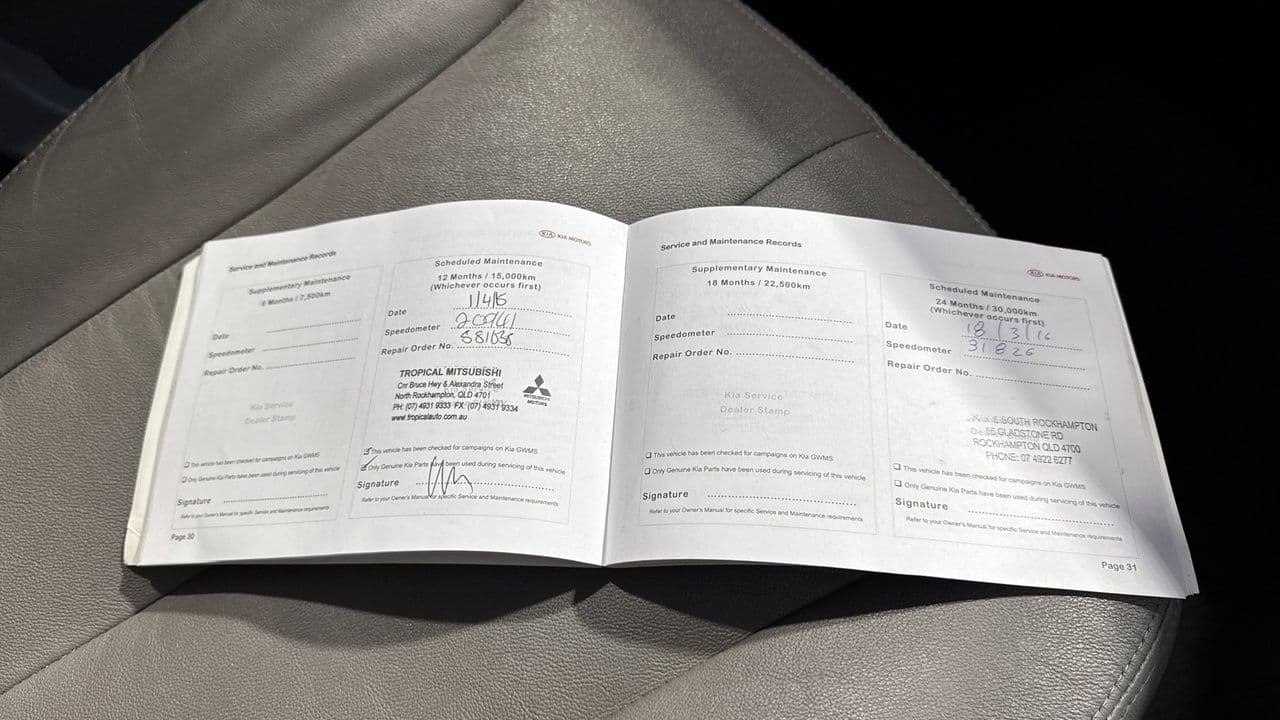 Service and Maintenance Records
KIA KIA MOTORS
Supplementary Maintenance
6 Months / 7,500km
Date
Speedometer
Repair Order No.
Kia Service
Dealer Stamp
This vehicle has been checked for campaigns on Kia GWMS
Only Genuine Kia Parts have been used during servicing of this vehicle
Signature
Refer to your Owner's Manual for specific Service and Maintenance requirements
Page 30
Scheduled Maintenance
12 Months / 15,000km
(Whichever occurs first)
Date 1/4/15
Speedometer
Repair Order No.
TROPICAL MITSUBISHI
Cnr Bruce Hwy & Alexandra Street
North Rockhampton, QLD 4701
PH: (07) 4931 9333 FX: (07) 4931 9334
www.tropicalauto.com.au
MITSUBISHI
MOTORS
This vehicle has been checked for campaigns on Kia GWMS
Only Genuine Kia Parts have been used during servicing of this vehicle
Signature
Refer to your Owner's Manual for specific Service and Maintenance requirements
Service and Maintenance Records
KIA KIA MOTORS
Supplementary Maintenance
18 Months / 22,500km
Date
Speedometer
Repair Order No.
Kia Service
Dealer Stamp
This vehicle has been checked for campaigns on Kia GWMS
Only Genuine Kia Parts have been used during servicing of this vehicle
Signature
Refer to your Owner's Manual for specific Service and Maintenance requirements
Scheduled Maintenance
24 Months / 30,000km
(Whichever occurs first)
Date 18/3/16
Speedometer 31826
Repair Order No.
SOUTH ROCKHAMPTON
55 GLADSTONE RD
ROCKHAMPTON QLD 4700
PHONE: 07 4922 6277
This vehicle has been checked for campaigns on Kia GWMS
Only Genuine Kia Parts have been used during servicing of this vehicle
Signature
Refer to your Owner's Manual for specific Service and Maintenance requirements
Page 31